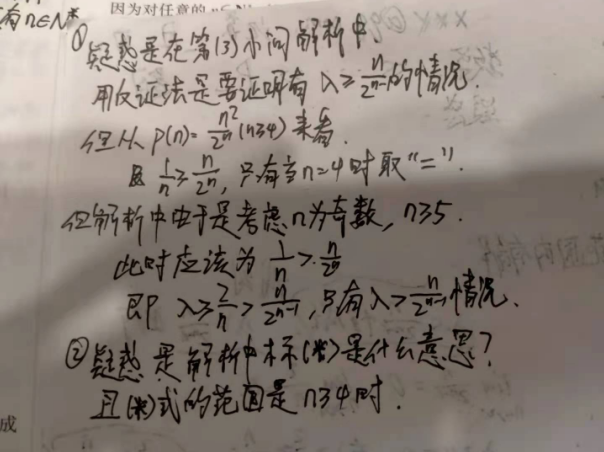 因为对任意的
有n∈N*
① 疑惑是在第(3)小问解析中,
用反证法是要证明有 λ≥n/2ⁿ⁻¹的情况.
但从 P(n)=n²/2ⁿ(n≥4)来看.
且 1/n≥n/2ⁿ,只有当n=4时取“=”.
但解析中由于是考虑n为奇数,n≥5.
此时应该为 1/n>n/2ⁿ
即 λ≥2/n>n/2ⁿ⁻¹,只有λ>n/2ⁿ⁻¹情况.
② 疑惑是解析中标(※)是什么意思?
且(※)式的范围是n≥4时.
成